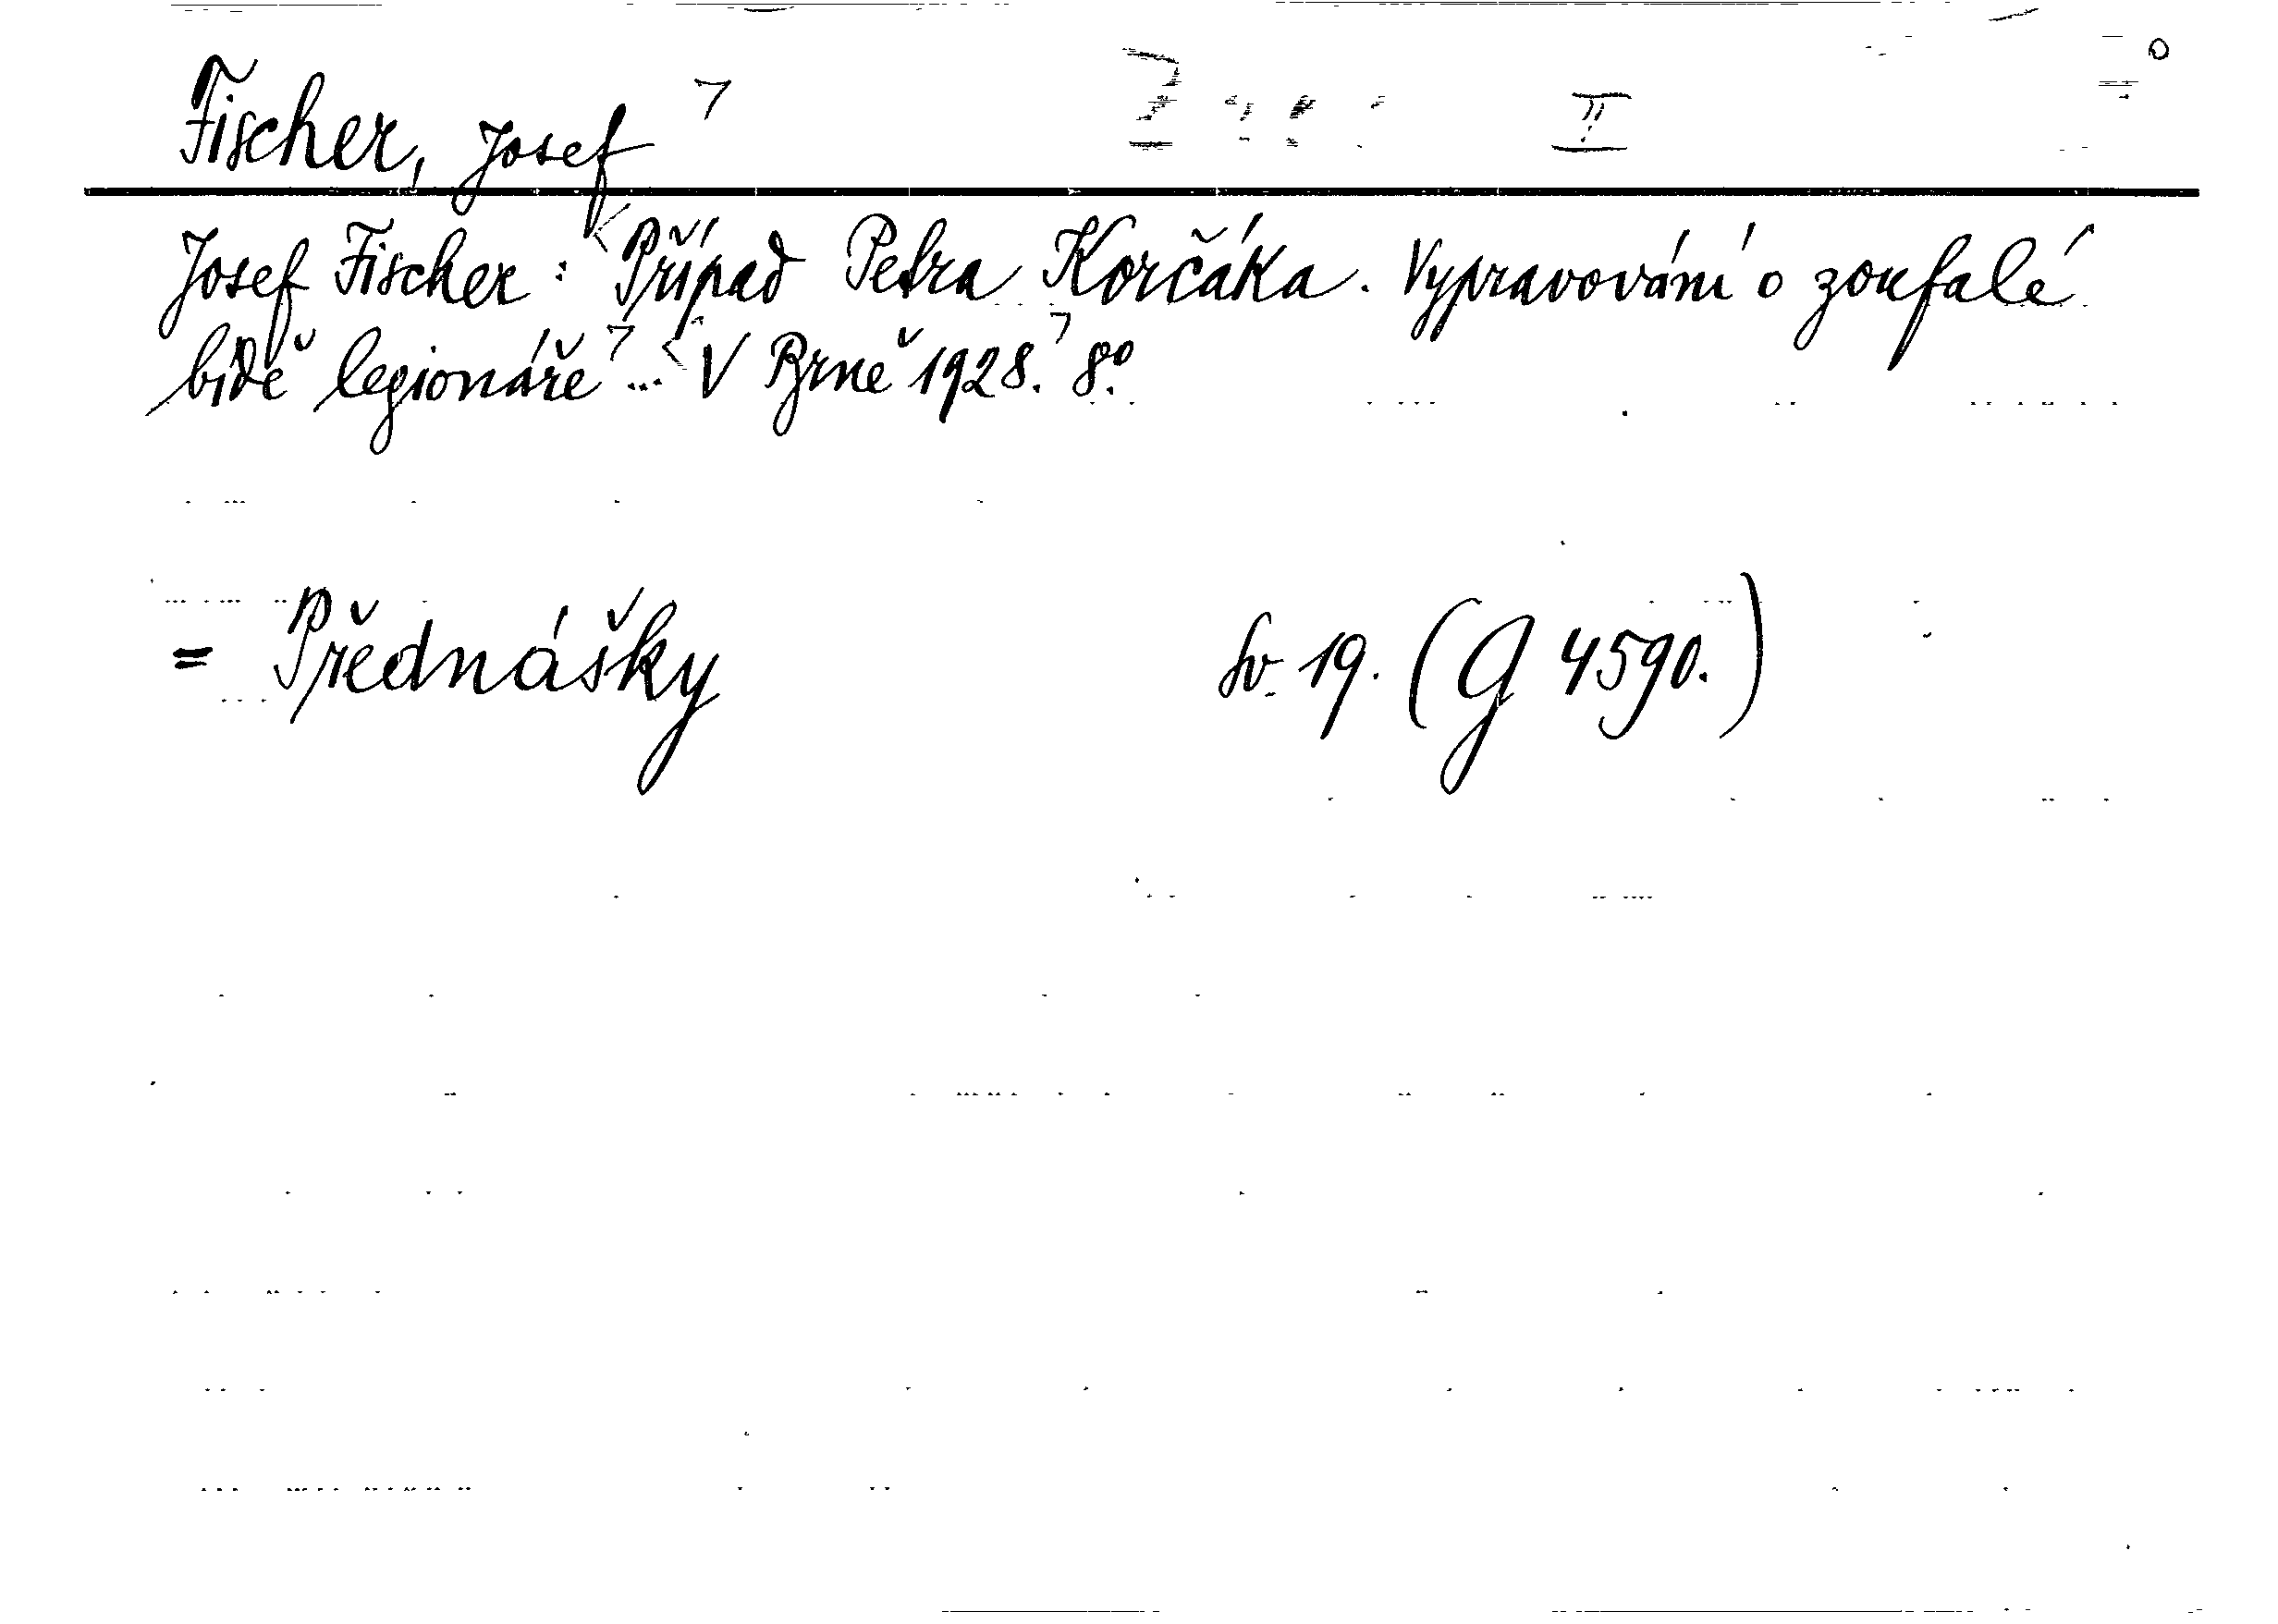 Fischer, Josef II
Josef Fischer: Případ Petra Korčáka. Vypravování o zoufalé
bídě legionáře ... V Brně 1928. 8°.
= Přednášky sv. 19. (G 4590.)